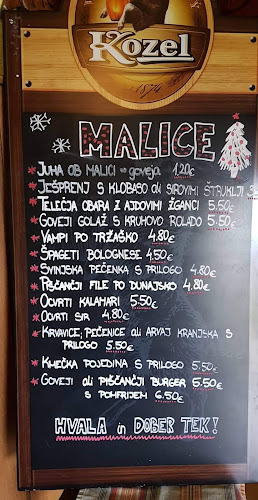 Kozel
1874
MALICE
JUHA OB MALICI - goveja 1,20€
JEŠPRENJ S KLOBASO ali SIROVIMI ŠTRUKLJI
TELEČJA OBARA Z AJDOVIMI ŽGANCI 5.50€
GOVEJI GOLAŽ S KRUHOVO ROLADO 5.50€
VAMPI PO TRŽAŠKO 4.80€
ŠPAGETI BOLOGNESE 4.50€
SVINJSKA PEČENKA S PRILOGO 4.80€
PIŠČANČJI FILE PO DUNAJSKO 4.80€
OCVRTI KALAMARI 5.50€
OCVRTI SIR 4.80€
KRVAVICE; PEČENICE ali ARVAJ KRANJSKA S
PRILOGO 5.50€
KMEČKA POJEDINA S PRILOGO 5.50€
GOVEJI ali PIŠČANČJI BURGER 5.50€
S POMFRIJEM 6.50€
HVALA in DOBER TEK!